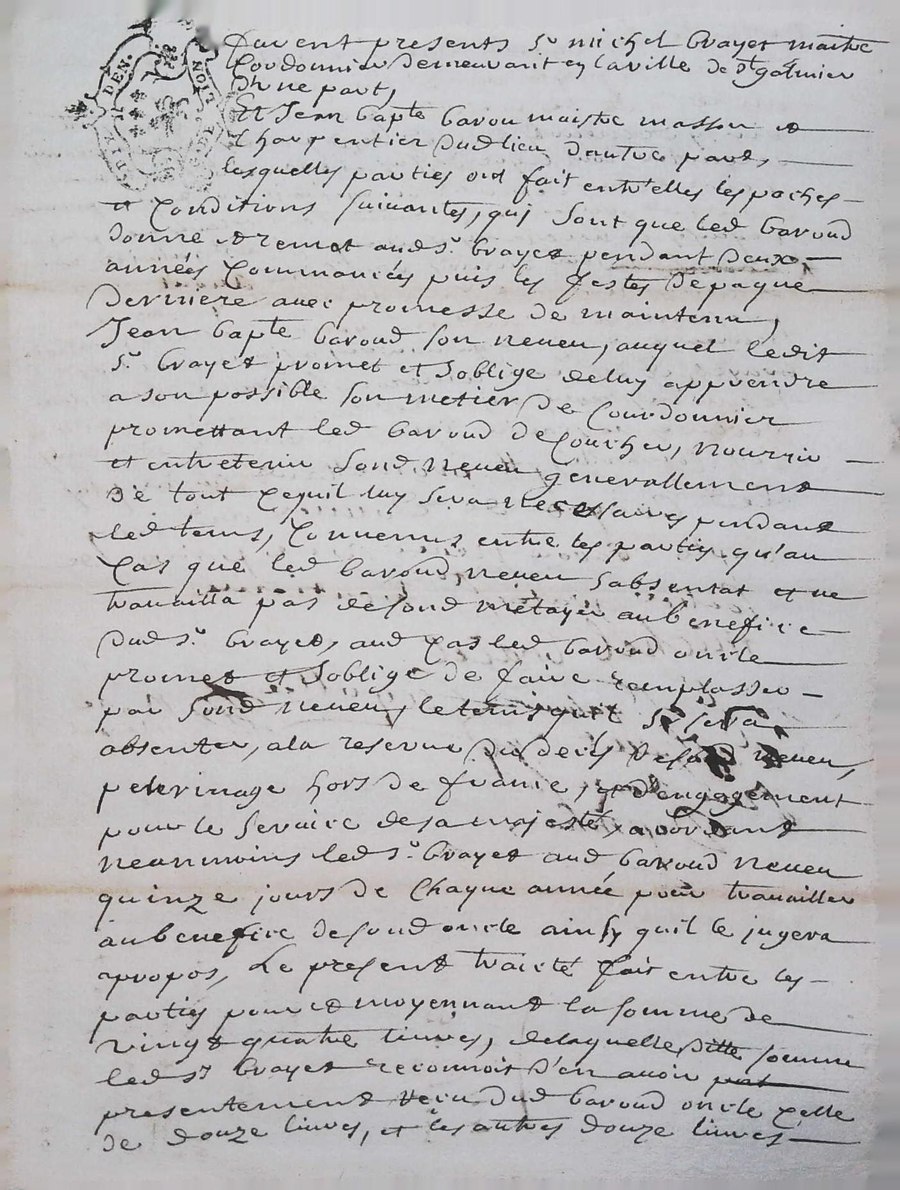 furent presents Sr michel brayet maitre
Cordonnier demeurant en laville de St galmier
d'une part,
Et Jean bapte barou maistre masson et
Charpentier dud lieu d'autre part,
lesquelles parties ont fait entr'elles les paches
et Conditions suivantes, qui sont que led baroud
donne et remet aud Sr brayet pendant deux
années Commancées puis les festes de paque
derniere avec promesse de maintenir,
Jean bapte baroud son neveu, auquel ledit
Sr brayet promet et s'oblige deluy apprendre
a son possible son metier de Courdonnier
promettant led baroud de coucher, nourrir
et entretenir sond neveu generallement
de tout cequil luy sera necessaires pendant
led tems, Convenus entre les parties qu'au
Cas que led baroud neveu s'absentat et ne
travailla pas desond metayer aubenefice
dud Sr brayet, aud Cas led baroud oncle
promet et s'oblige de faire remplasser
par sond neveu, letems quil se sera
absenter, ala reserve du deces desond neveu,
pelerinage hors de france, et d'engagement
pour le service desa majesté, acordant
neanmoins led Sr brayet aud baroud neveu
quinze jours de Chaque année pour travailler
aubenefice desond oncle ainsy quil le jugera
apropos, Le present traicté fait entre les
parties pour et moyennant lasomme de
vingt quatre livres, delaquelle ditte somme
led Sr brayet reconnoit d'en avoir
presentement receu dud baroud oncle celle
de douze livres, et les autres douze livres